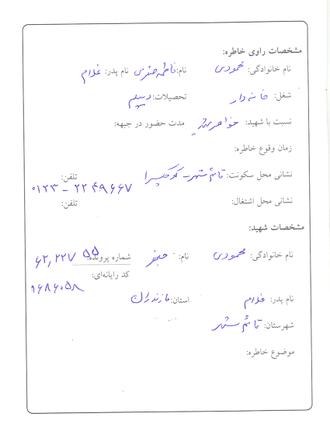 مشخصات راوی خاطره:
نام خانوادگی: محمودی نام: فاطمه صغری نام پدر: غلام
شغل: خانه دار تحصیلات: دیپلم
نسبت با شهید: خواهر مدت حضور در جبهه:
زمان وقوع خاطره:
نشانی محل سکونت: قائم شهر - تلفن: ۰۱۲۳ - ۲۲۴۹۶۶۷
نشانی محل اشتغال: تلفن:
مشخصات شهید:
نام خانوادگی: محمودی نام: جعفر شماره پرونده:
کد رایانه‌ای:
نام پدر: غلام استان: مازندران
شهرستان: قائم شهر
موضوع خاطره: